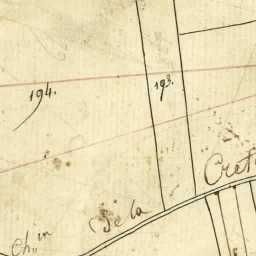 194.
193.
Ch.in De la Cret